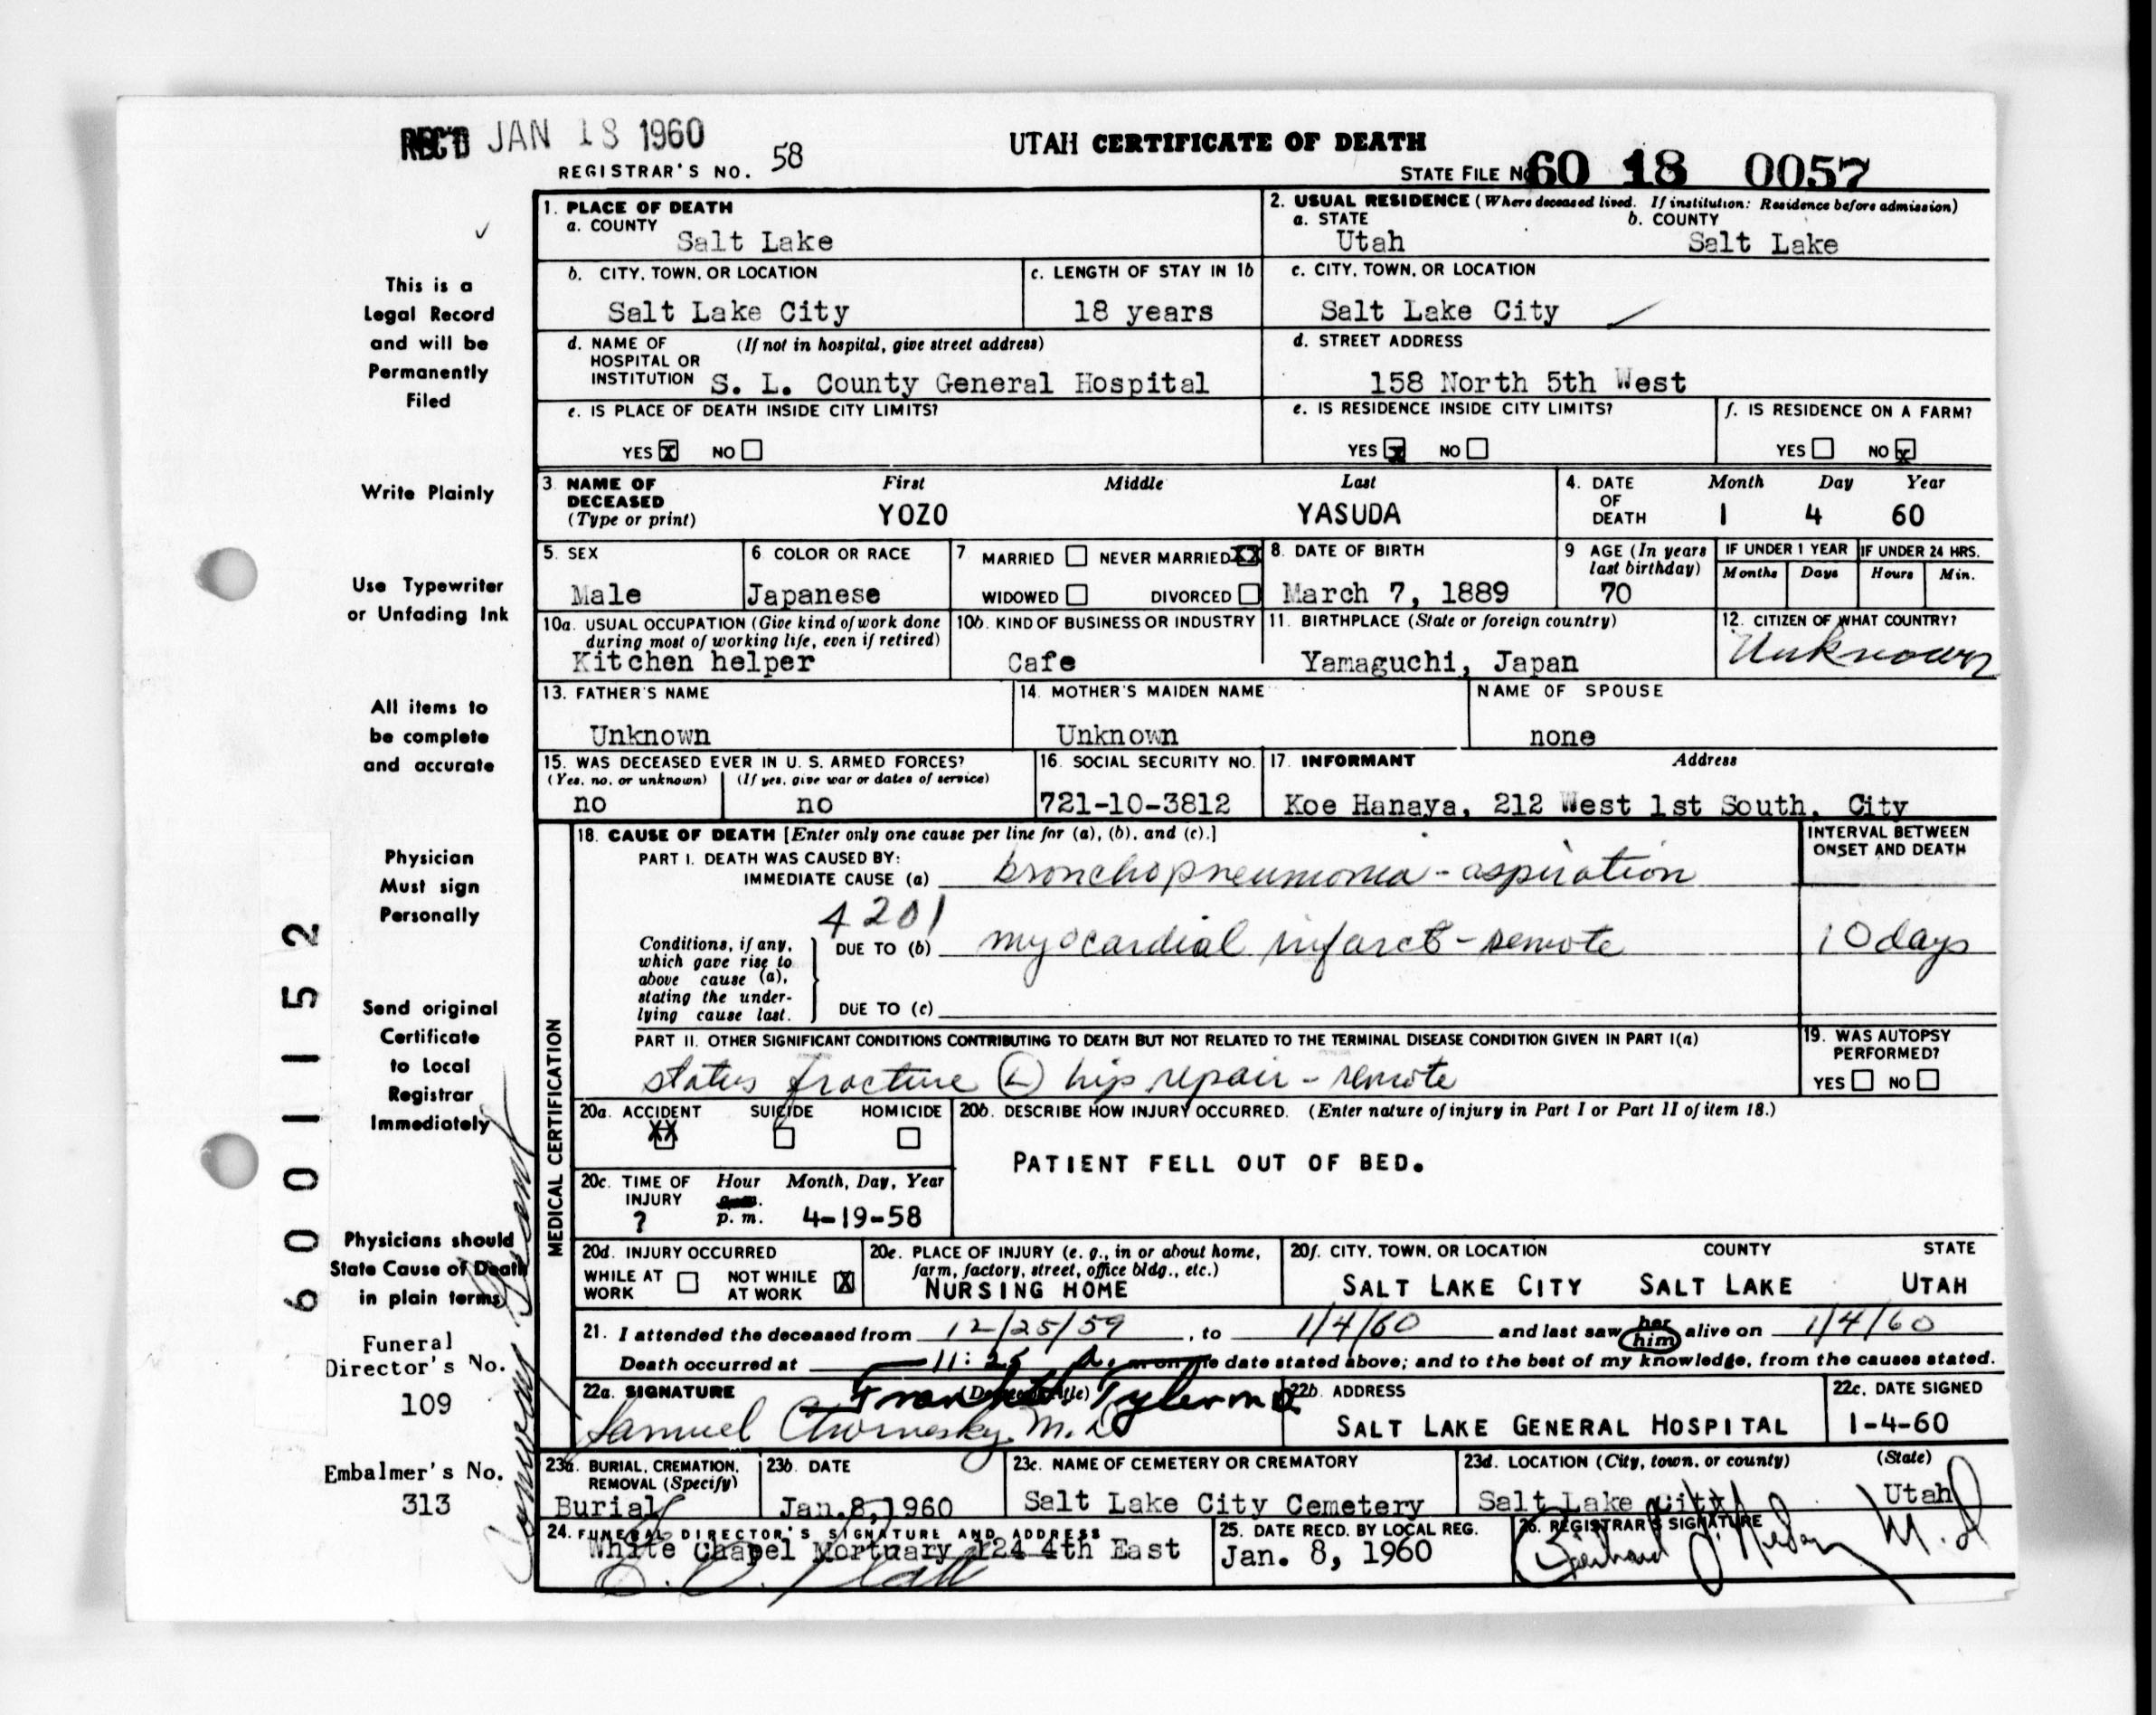 REC'D JAN 18 1960
UTAH CERTIFICATE OF DEATH
REGISTRAR'S NO. 58
STATE FILE No 60 18 0057
This is a
Legal Record
and will be
Permanently
Filed
Write Plainly
Use Typewriter
or Unfading Ink
All items to
be complete
and accurate
Physician
Must sign
Personally
Send original
Certificate
to Local
Registrar
Immediately
Physicians should
State Cause of Death
in plain terms
Funeral
Director's No.
109
Embalmer's No.
313
6001152
1. PLACE OF DEATH
a. COUNTY
Salt Lake
2. USUAL RESIDENCE (Where deceased lived. If institution: Residence before admission)
a. STATE b. COUNTY
Utah Salt Lake
b. CITY, TOWN, OR LOCATION
Salt Lake City
c. LENGTH OF STAY IN 1b
18 years
c. CITY, TOWN, OR LOCATION
Salt Lake City
d. NAME OF (If not in hospital, give street address)
HOSPITAL OR
INSTITUTION S. L. County General Hospital
d. STREET ADDRESS
158 North 5th West
e. IS PLACE OF DEATH INSIDE CITY LIMITS?
YES X NO
e. IS RESIDENCE INSIDE CITY LIMITS?
YES X NO
f. IS RESIDENCE ON A FARM?
YES NO X
3. NAME OF DECEASED (Type or print)
First Middle Last
YOZO YASUDA
4. DATE OF DEATH
Month Day Year
1 4 60
5. SEX
Male
6. COLOR OR RACE
Japanese
7. MARRIED NEVER MARRIED XX
WIDOWED DIVORCED
8. DATE OF BIRTH
March 7, 1889
9 AGE (In years last birthday)
70
IF UNDER 1 YEAR
Months Days
IF UNDER 24 HRS.
Hours Min.
10a. USUAL OCCUPATION (Give kind of work done
during most of working life, even if retired)
Kitchen helper
10b. KIND OF BUSINESS OR INDUSTRY
Cafe
11. BIRTHPLACE (State or foreign country)
Yamaguchi, Japan
12. CITIZEN OF WHAT COUNTRY?
Unknown
13. FATHER'S NAME
Unknown
14. MOTHER'S MAIDEN NAME
Unknown
NAME OF SPOUSE
none
15. WAS DECEASED EVER IN U. S. ARMED FORCES?
(Yes, no, or unknown) (If yes, give war or dates of service)
no no
16. SOCIAL SECURITY NO.
721-10-3812
17. INFORMANT Address
Koe Hanaya, 212 West 1st South, City
MEDICAL CERTIFICATION
18. CAUSE OF DEATH [Enter only one cause per line for (a), (b), and (c).]
INTERVAL BETWEEN
ONSET AND DEATH
PART I. DEATH WAS CAUSED BY:
IMMEDIATE CAUSE (a) bronchopneumonia - aspiration
4201
Conditions, if any,
which gave rise to
above cause (a),
stating the under-
lying cause last.
DUE TO (b) myocardial infarct - remote 10 days
DUE TO (c)
PART II. OTHER SIGNIFICANT CONDITIONS CONTRIBUTING TO DEATH BUT NOT RELATED TO THE TERMINAL DISEASE CONDITION GIVEN IN PART I(a)
status fracture (L) hip repair - remote
19. WAS AUTOPSY
PERFORMED?
YES NO
20a. ACCIDENT SUICIDE HOMICIDE
XX
20b. DESCRIBE HOW INJURY OCCURRED. (Enter nature of injury in Part I or Part II of item 18.)
PATIENT FELL OUT OF BED.
20c. TIME OF INJURY Hour Month, Day, Year
? a.m. p. m. 4-19-58
20d. INJURY OCCURRED
WHILE AT WORK NOT WHILE AT WORK X
20e. PLACE OF INJURY (e. g., in or about home,
farm, factory, street, office bldg., etc.)
NURSING HOME
20f. CITY, TOWN, OR LOCATION COUNTY STATE
SALT LAKE CITY SALT LAKE UTAH
21. I attended the deceased from 12/25/59, to 1/4/60 and last saw her him alive on 1/4/60
Death occurred at 11:25 a. m on the date stated above; and to the best of my knowledge, from the causes stated.
22a. SIGNATURE (Degree or title)
Frank H. Tyler MD
Samuel M.D
22b. ADDRESS
SALT LAKE GENERAL HOSPITAL
22c. DATE SIGNED
1-4-60
23a. BURIAL, CREMATION,
REMOVAL (Specify)
Burial
23b. DATE
Jan.8,1960
23c. NAME OF CEMETERY OR CREMATORY
Salt Lake City Cemetery
23d. LOCATION (City, town, or county) (State)
Salt Lake City Utah
24. FUNERAL DIRECTOR'S SIGNATURE AND ADDRESS
White Chapel Mortuary 124 4th East
25. DATE RECD. BY LOCAL REG.
Jan. 8, 1960
26. REGISTRAR'S SIGNATURE
M.D